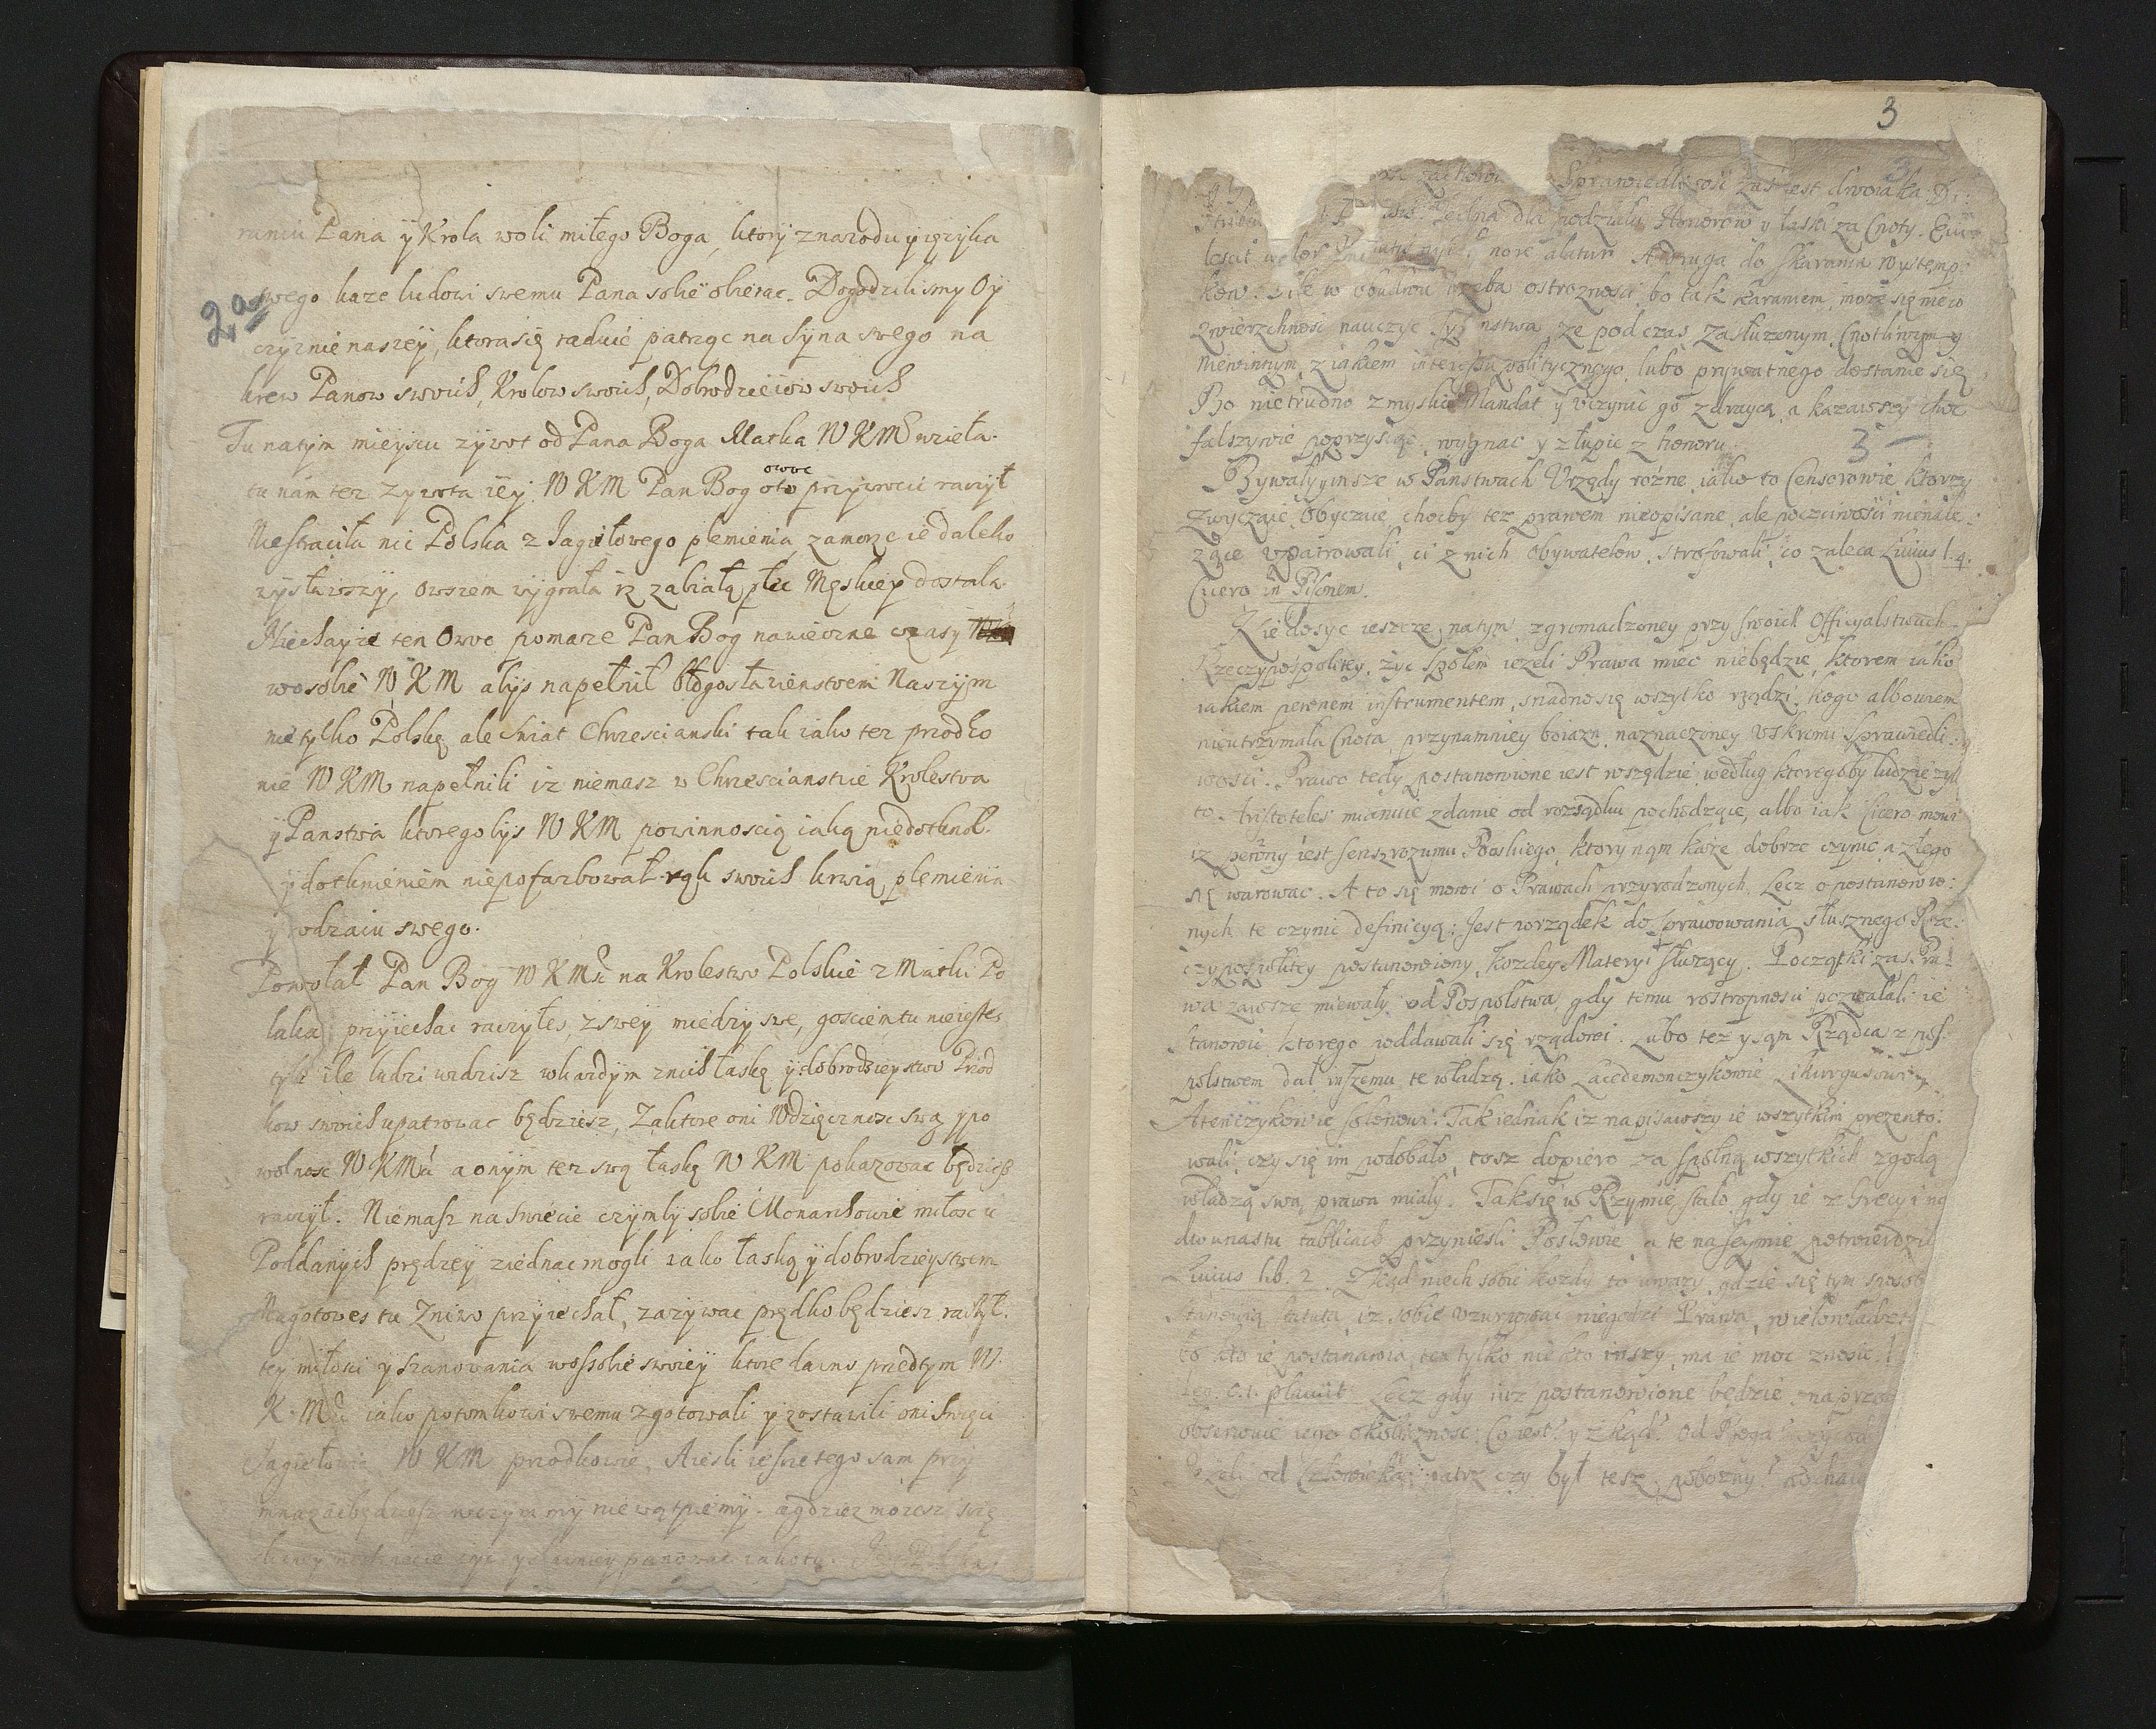 raniu Pana ÿ Krola woli miłego Boga, ktory znarodu yięzyka
swego kaze ludowi swemu Pana sobie obierac. Dogodzilismy Oÿ
2a
czyznie naszeÿ, ktora się raduie patrząc na sÿna swego na
krew Panow swoich, Krolow swoich, Dobrodzieiow swoich
Tu natÿm mieÿscu zÿwot od Pana Boga Matka W KMć wzieła.
tu nam tez Zywota ieÿ W KM Pan Bog owoc przÿwrocic raczÿł
Niestraciła nic Polska z Jagiełowego plemienia zamorze ie daleko
wÿsławszÿ, owszem wÿgrała iz zabiałą płec Męskieÿ dostała.
Niechayze ten Owoc pomaze Pan Bog nawieczne czasÿ
wosobie W KM abÿs napełnił błogosławienstwem Naszÿm
nie tÿlko Polskę ale swiat Chrzescianski tak iako tez przodko
wie W KM napełnili iz niemasz w Chrzescianstwie Krolestwa
ÿ Panstwa ktoregobÿs W KM powinnoscią iaką niedotknął.
ÿ dotknieniem niepofarbował rąk swoich krwią plemienia
ÿ rodzaiu swego.
Powołał Pan Bog W KMć na Krolestwo Polskie z Matki Po
laka prziiechac raczyłes, z sweÿ miedzÿ swe, gosciem tu nieiestes
tÿle ile ludzi widzisz wkazdÿm znich łaskę ÿ dobrodzieystwo Przod
kow swoich upatrowac będziesz, Zaktore oni Wdzięcznosc swą ypo
wolnosc W KMci a onÿm tez swą łaskę W KM pokazowac będziesz
raczÿł. Niemasz na swiecie czÿmbÿ sobie Monarchowie miłosc u
Poddanÿch prędzeÿ ziednac mogli iako łaską ÿ dobrodzieystwem
Nagotowes tu Zniwo przÿiechał, zazÿwac prędko będziesz raczÿł.
teÿ miłosci ÿ szanowania wosobie swoieÿ ktore dawno przedtym W.
K Mci iako potomkowi swemu zgotowali ÿ zostawili oni Swięci
Jagiełowie W KM przodkowie. Aiesli ieszcze tego sam przÿ
mnazac będziesz wczym mÿ nie wątpiemÿ. agdziez mozesz szczę
sliweÿ naswiecie zyc y sławniey panowac iakotu.
3
Sprawiedliwosc zas iest dwoiaka: Di:
Jedna dla podziału Honorow y łaski za Cnoty.
A druga do skarania wystemp:
kow. trzeba ostroznosci, bo tak karaniem, moze się niew
zwierzchnosc nauczyc ze podczas zasłuzonym, Cnotliwym y
Niewinnym, z iakiem interesu politycznego, lubo prywatnego dostanie się
Bo nietrudno zmyslic Mandat y vczynic go zdraycą, a kazawszy choc
falszywie poprzysiąc, wygnac y złupic z honoru. 3
Bywały yinsze w Panstwach Vrzędy rożne, iako to Censorowie ktorzy
zwyczaie, Obyczaie, chocby tez prawem nieopisane, ale poczciwosci nienale:
zące vpatrowali, ci z nich Obywatelow strofowali, co zaleca Livius l. 4.
Cicero in Pisonem.
Nie dosyc ieszcze natym, zgromadzoney przy swoich Officyalstwach
Rzeczypospolitey, zyc społem iezeli Prawa miec niebędzie, ktorem iako
iakiem pewnem instrumentem, snadno się wszytko rządzi, kogo albowiem
nieutrzymała Cnota, przynamniey boiazn naznaczoney Vskromi Sprawiedli:
wosci. Prawo tedy postanowione iest wszędzie według ktoregoby ludzie zyli
to Aristoteles mianuie zdanie od rozsądku pochodzące, albo iak Cicero mowi
iz pewny iest sens rozumu Boskiego, ktory nąm każe dobrze czynic a złego
się warowac. A to się mowi o Prawach przyrodzonych, Lecz o postanowio:
nych te czynie definicyą: Jest porządek do sprawowania słusznego Rze:
czypospolitey postanowiony, kozdey Materyi słuzący. Początki zas Pra:
wa zawsze miewały od Pospolstwa, gdy temu rostropnosci pozwalali ie
stanowic, ktorego poddawali się rządowi. Lubo tez y sąm Rządca z pos:
polstwem dał inszemu te władzą, iako Lacedemonczykowie Likurgusowi,
Atenczykowie Solonowi. Tak iednak iz napisawszy ie wszytkim prezento:
wali, czy się im podobało, tosz dopiero za spolną wszytkich zgodą
władzą swą prawa miały. Tak się w Rzymie stało, gdy ie z Grecyi na
dwunastu tablicach przyniesli Posłowie, a te na seymie potwierdzil
Livius lib. 2. Ztąd niech sobie kozdy to uwazy, gdzie się tym sposob
stanowią statuta, iz sobie vzurpowac niegodzi Prawa,
to kto ie postanawia, ten tylko nie kto inszy, ma ie moc znosic
Lecz gdy iuz postanowione będzie,
obserwuie iego okolicznosc: Co iest? y zkąd? Od Boga?
Jezeli od Człowieka: patrz czy był tesz pobozny?